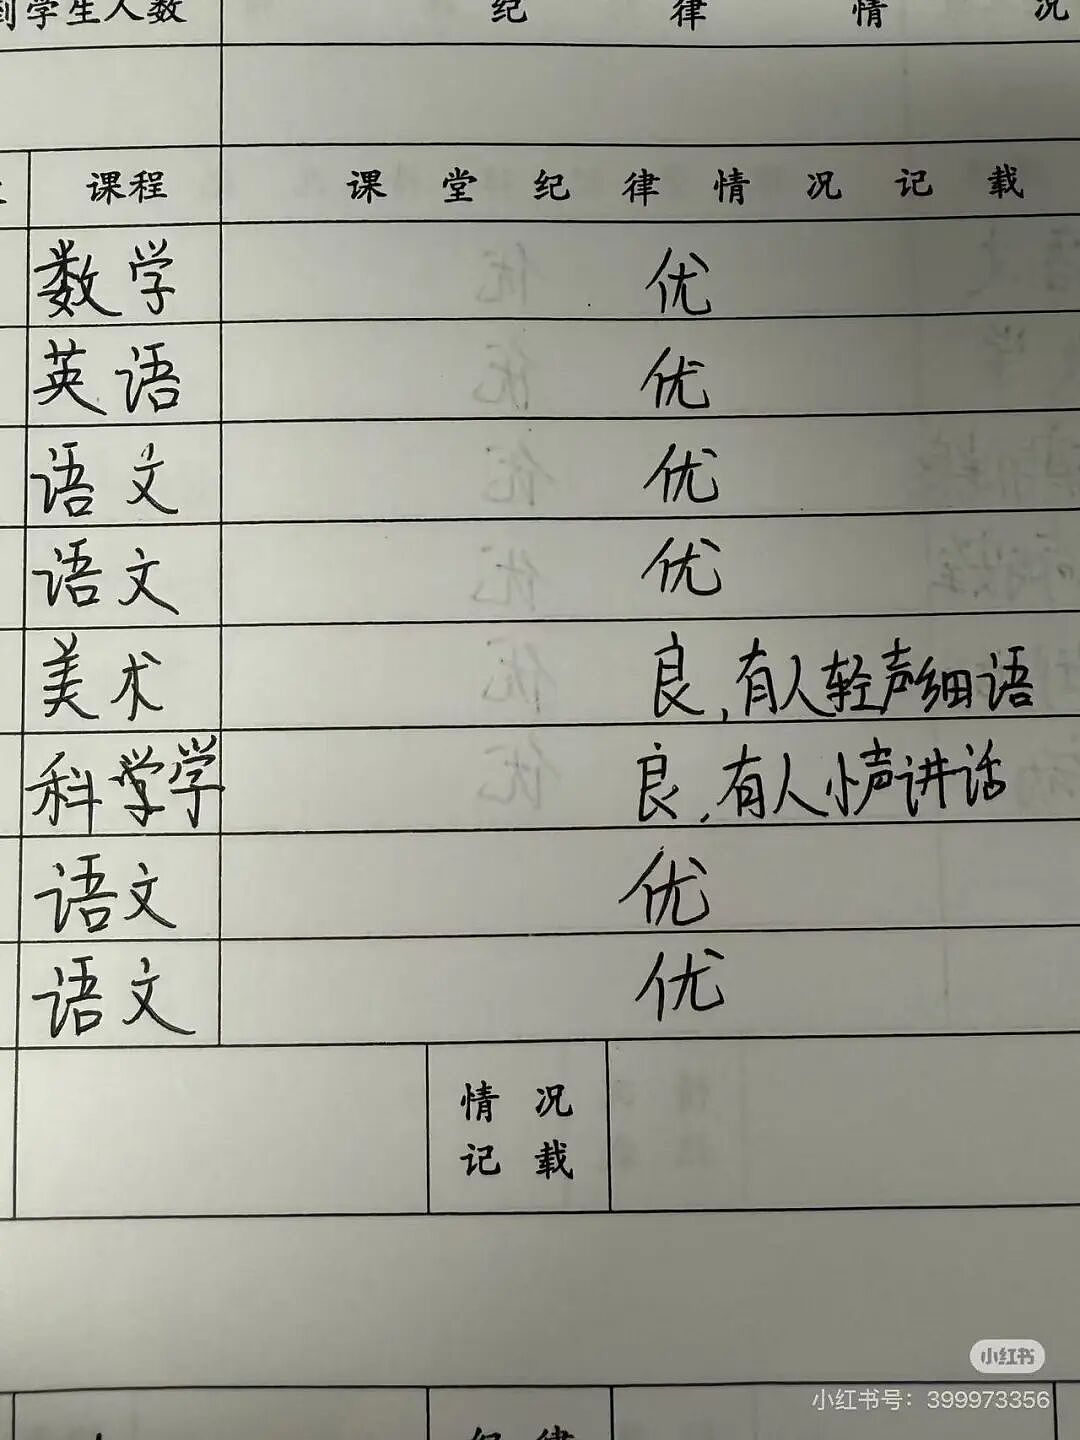 到学生人数 纪律情况
课程 课堂纪律情况记载
数学 优
英语 优
语文 优
语文 优
美术 良,有人轻声细语
科学学 良,有人小声讲话
语文 优
语文 优
情况
记载
小红书
小红书号：399973356
纪律